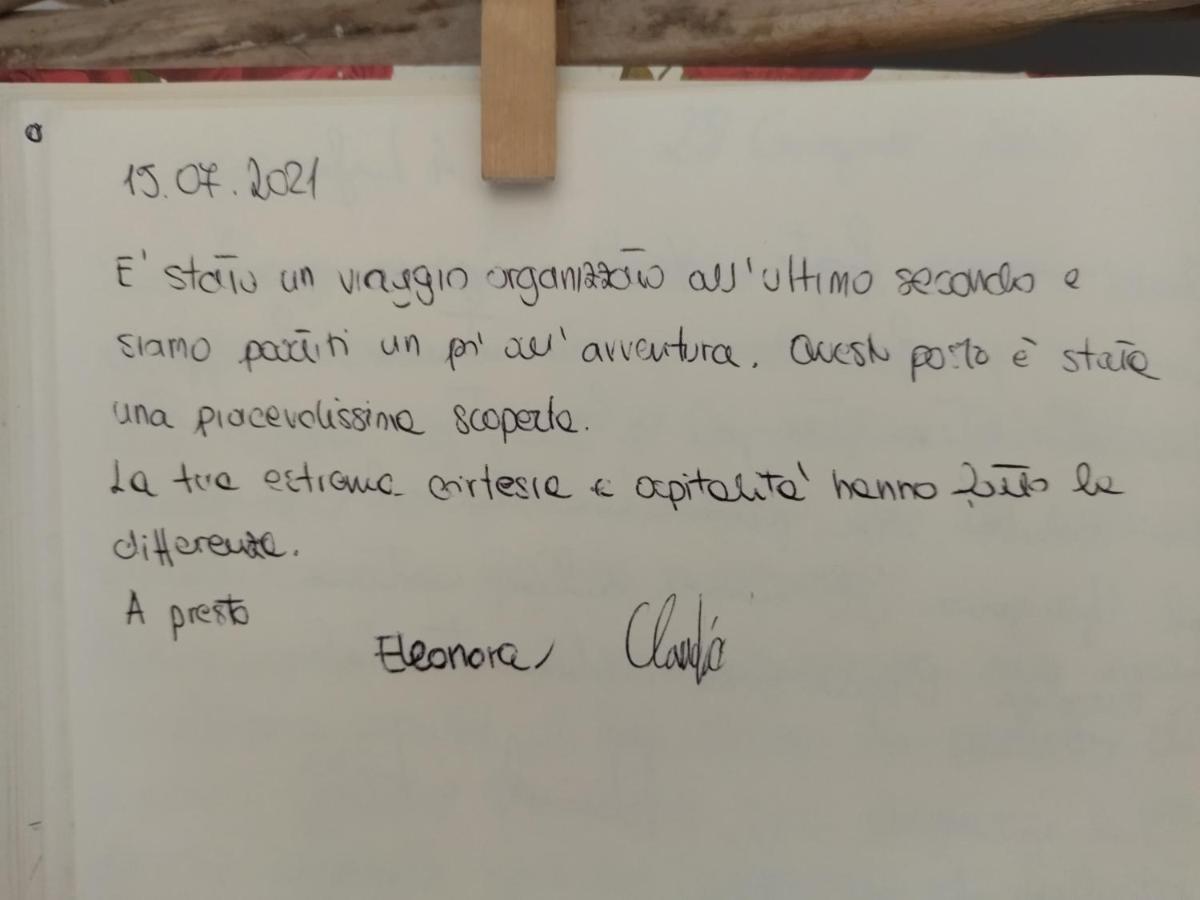 15.07.2021
E' stato un viaggio organizzato all'ultimo secondo e
siamo partiti un po' all'avventura. Questo posto è stata
una piacevolissima scoperta.
La tua estrema cortesia e ospitalità hanno fatto la
differenza.
A presto
Eleonora, Claudia